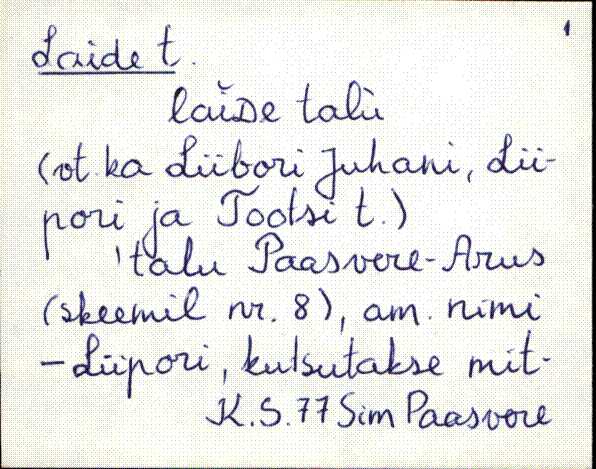 1
Laide t.
laĭDe talù
(vt. ka Liibori Juhani, Lii-
pori ja Tootsi t.)
'talu Paasvere-Arus
(skeemil nr. 8), am. nimi
– Liipori, kutsutakse mit-
K.S. 77 Sim Paasvere